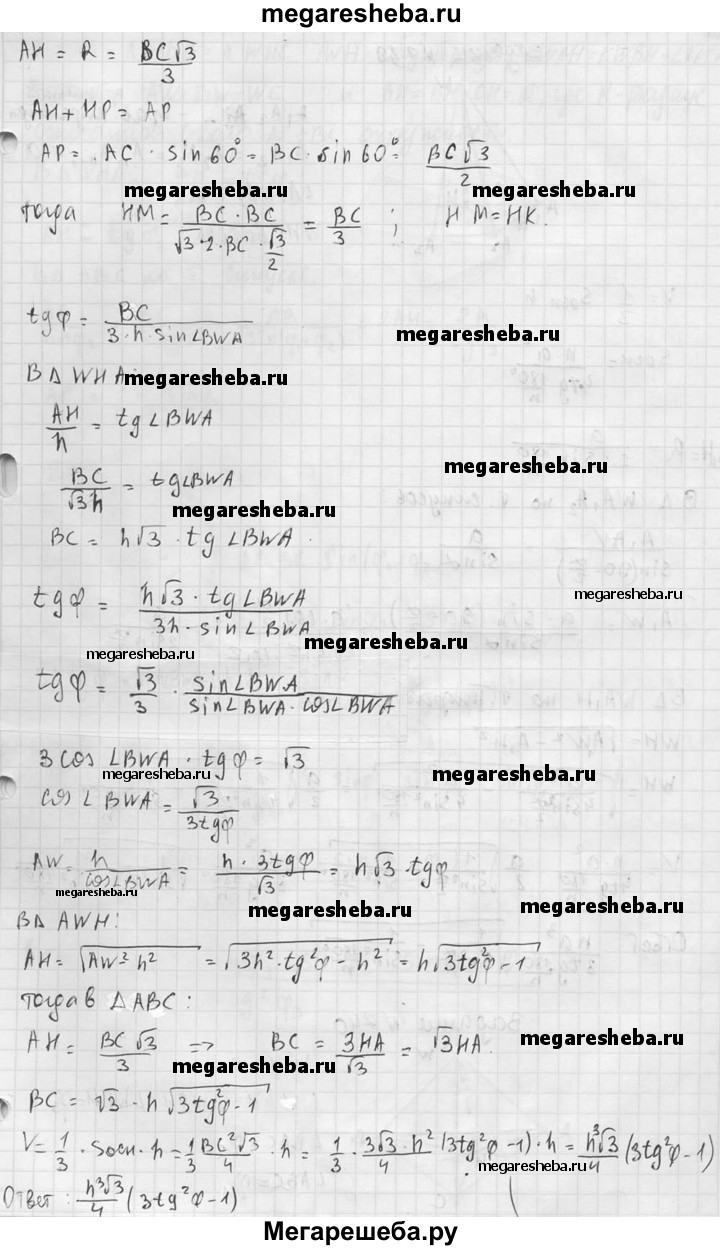 megaresheba.ru
AH = R = BC√3/3
AH + HP = AP
AP = AC · sin60° = BC · sin60° = BC√3/2
megaresheba.ru
megaresheba.ru
тогда HM = BC · BC/(√3 · 2 · BC · √3/2) = BC/3 ; HM = HK.
tgφ = BC/(3 · h · sin∠BWA)
megaresheba.ru
В Δ WHA:
megaresheba.ru
AH/h = tg∠BWA
BC/(√3h) = tg∠BWA
megaresheba.ru
megaresheba.ru
BC = h√3 · tg∠BWA.
tgφ = h√3 · tg∠BWA/(3h · sin∠BWA)
megaresheba.ru
megaresheba.ru
megaresheba.ru
tgφ = √3/3 · sin∠BWA/(sin∠BWA · cos∠BWA)
3cos∠BWA · tgφ = √3
megaresheba.ru
megaresheba.ru
cos∠BWA = √3/(3tgφ)
AW = h/cos∠BWA = h · 3tgφ/√3 = h√3 · tgφ
megaresheba.ru
megaresheba.ru
megaresheba.ru
В Δ AWH:
AH = √(AW² - h²) = √(3h² · tg²φ - h²) = h√(3tg²φ - 1)
тогда в Δ ABC:
AH = BC√3/3 => BC = 3HA/√3 = √3HA.
megaresheba.ru
megaresheba.ru
BC = √3 · h√(3tg²φ - 1)
V = 1/3 · Sосн · h = 1/3 BC²√3/4 · h = 1/3 · 3√3 · h²/4 (3tg²φ - 1) · h = h³√3/4 (3tg²φ - 1)
megaresheba.ru
Ответ: h³√3/4 (3tg²φ - 1)
Мегарешеба.ру